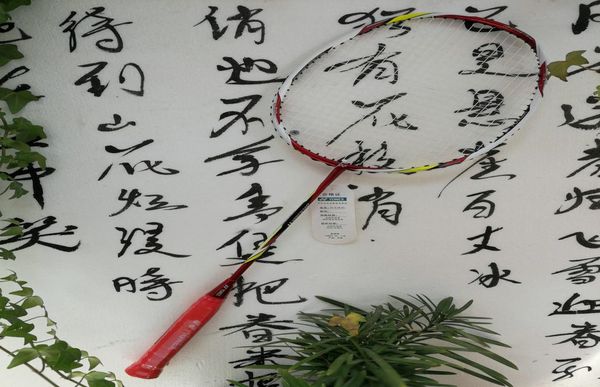 送春归飞雪迎春到
已是悬崖百丈冰
犹有花枝俏
俏也不争春只把春来报
待到山花烂漫時
笑
YONEX